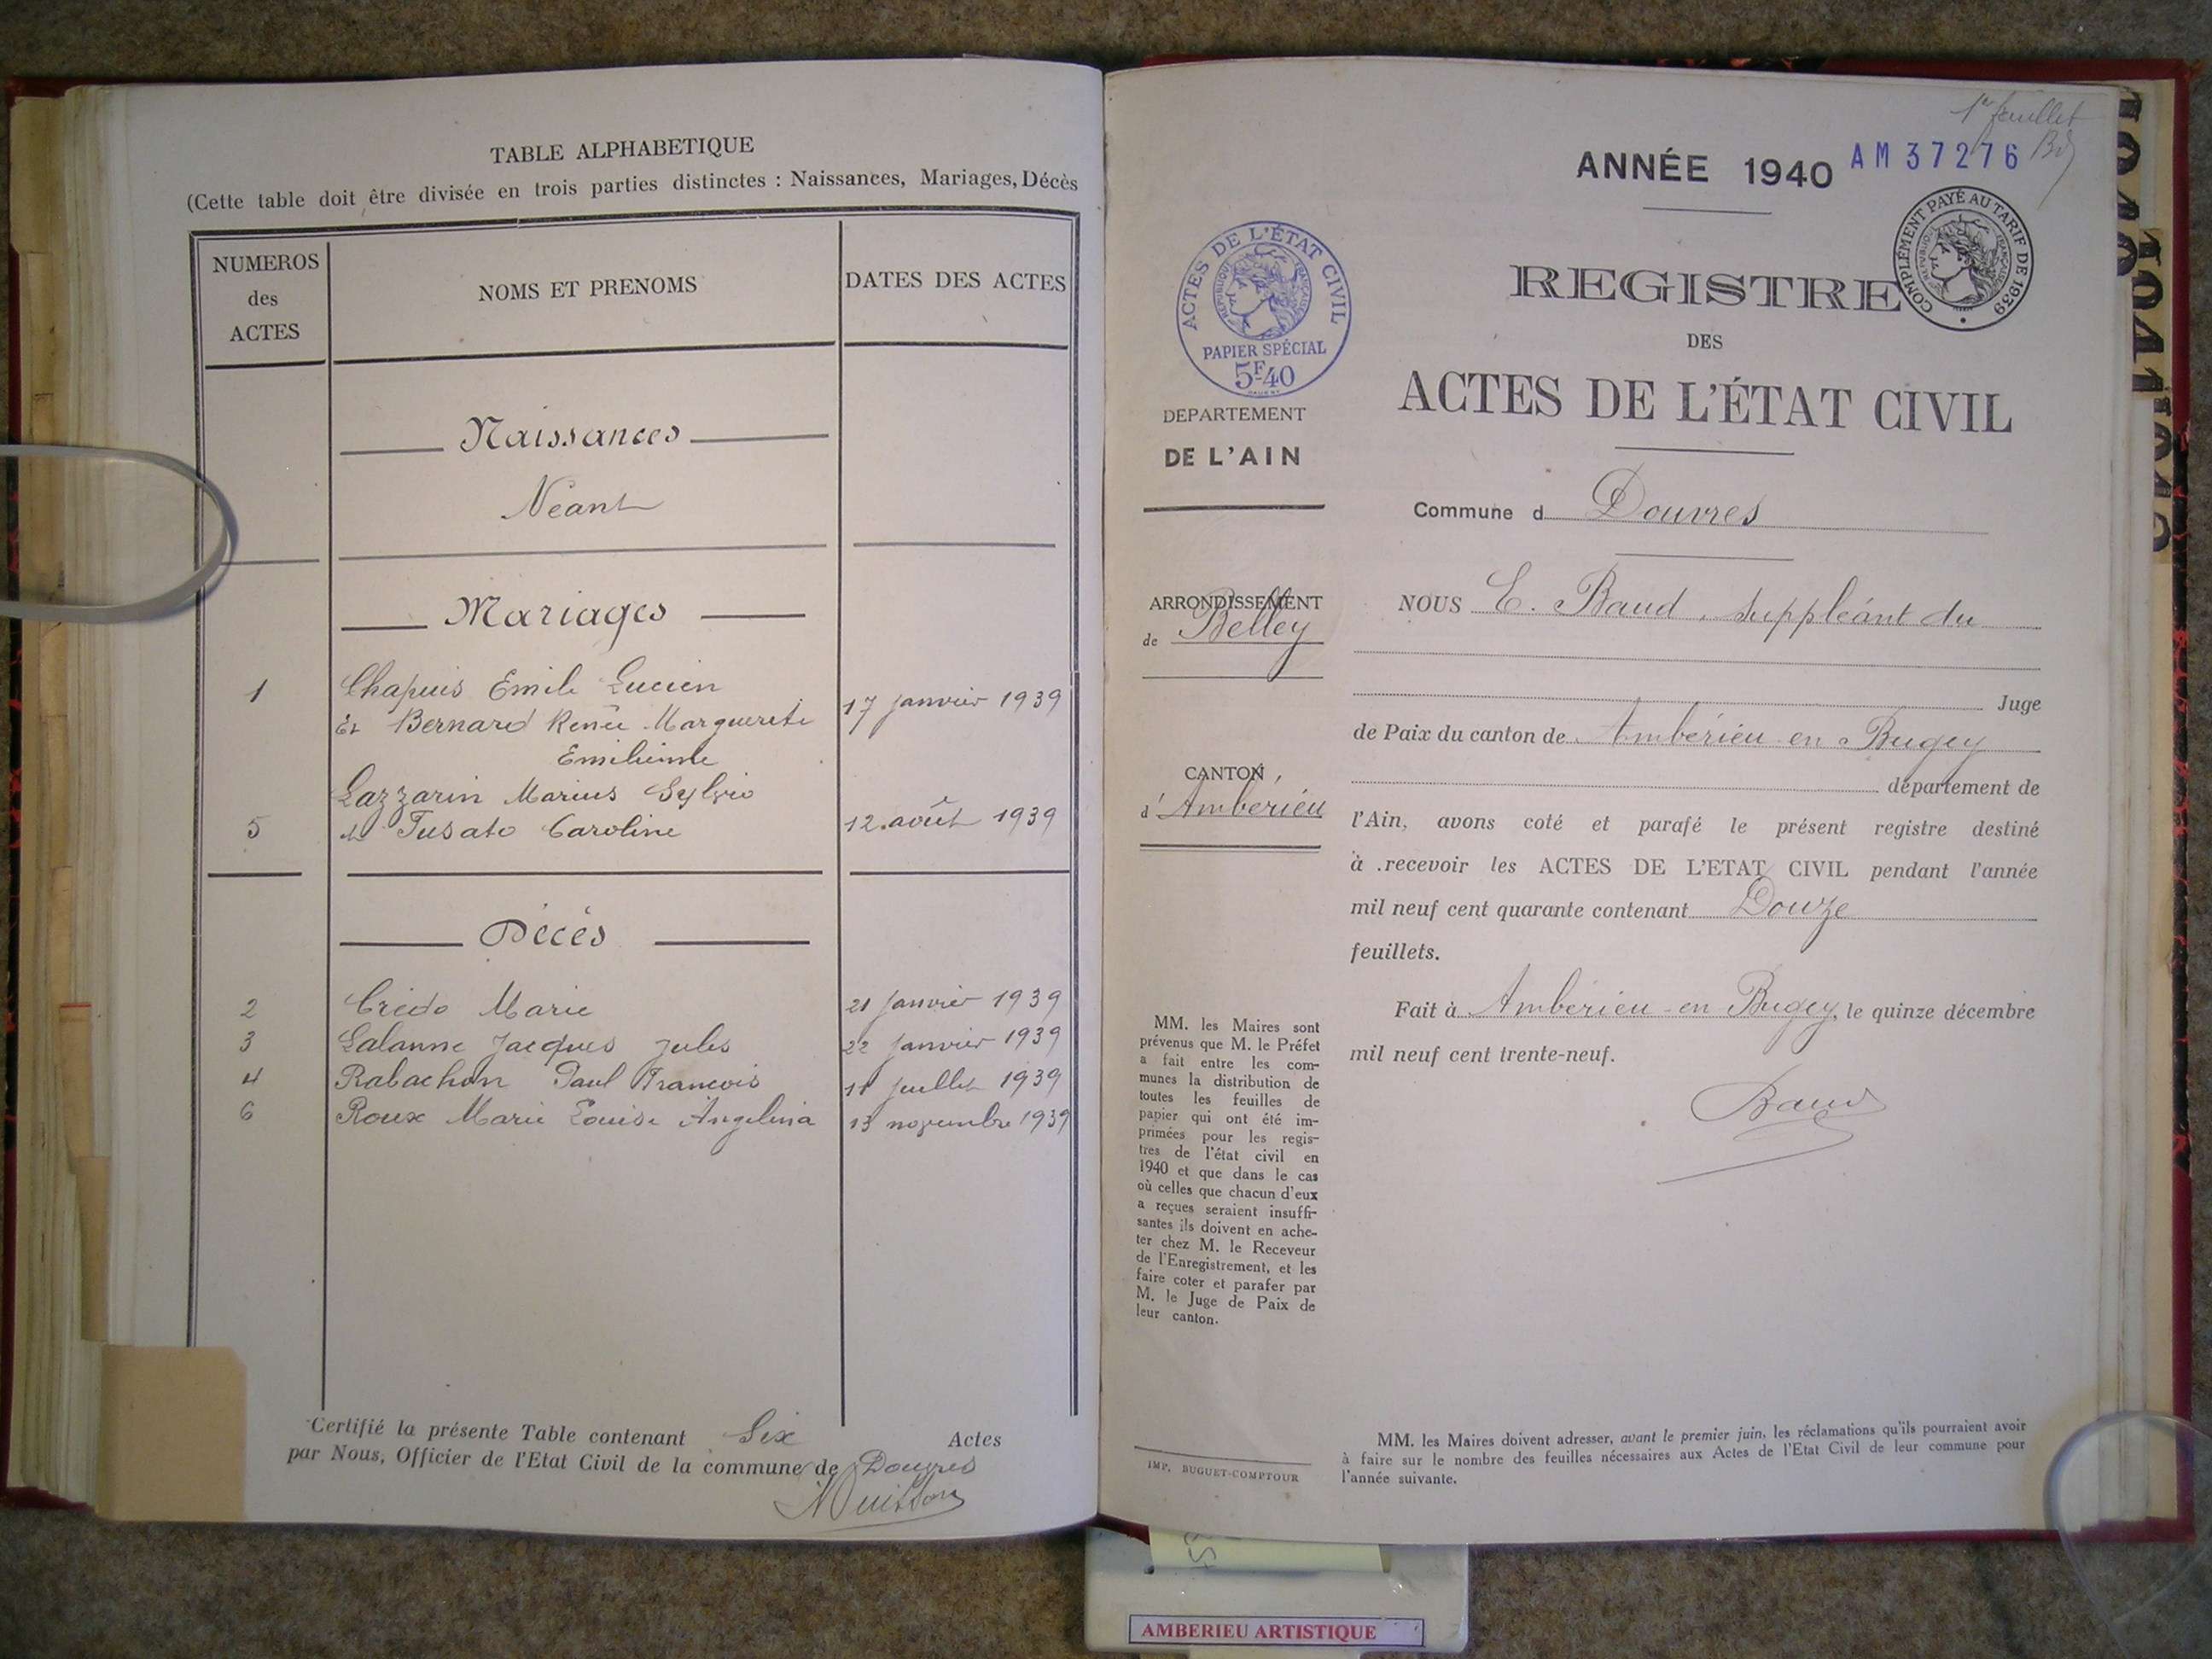 TABLE ALPHABETIQUE
(Cette table doit être divisée en trois parties distinctes : Naissances, Mariages, Décès
NUMEROS des ACTES
NOMS ET PRENOMS
DATES DES ACTES
Naissances
Néant
Mariages
1 Chapuis Emile Lucien
Et Bernard Renée Marguerite 17 janvier 1939
Emilienne
Lazzarin Marius Sylvio
5 et Tusato Caroline 12 août 1939
Décès
2 Crédo Marie 21 janvier 1939
3 Lalanne Jacques Jules 22 janvier 1939
4 Rabachon Paul François 11 juillet 1939
6 Roux Marie Louise Angelina 13 novembre 1939
Certifié la présente Table contenant Six Actes
par Nous, Officier de l'Etat Civil de la commune de Douvres
1er feuillet
Bd
ANNÉE 1940 AM 37276
COMPLÉMENT PAYÉ AU TARIF DE 1939
RÉPUBLIQUE FRANÇAISE
ACTES DE L'ÉTAT CIVIL
RÉPUBLIQUE FRANÇAISE
PAPIER SPÉCIAL
5F40
REGISTRE
DES
ACTES DE L'ÉTAT CIVIL
DEPARTEMENT
DE L'AIN
Commune d Douvres
ARRONDISSEMENT
de Belley
CANTON
d'Ambérieu
NOUS E. Baud, suppléant du
Juge
de Paix du canton de Ambérieu en Bugey
département de
l'Ain, avons coté et parafé le présent registre destiné
à recevoir les ACTES DE L'ETAT CIVIL pendant l'année
mil neuf cent quarante contenant Douze
feuillets.
Fait à Ambérieu-en Bugey, le quinze décembre
mil neuf cent trente-neuf.
Baud
MM. les Maires sont
prévenus que M. le Préfet
a fait entre les com-
munes la distribution de
toutes les feuilles de
papier qui ont été im-
primées pour les regis-
tres de l'état civil en
1940 et que dans le cas
où celles que chacun d'eux
a reçues seraient insuffi-
santes ils doivent en ache-
ter chez M. le Receveur
de l'Enregistrement, et les
faire coter et parafer par
M. le Juge de Paix de
leur canton.
IMP. BUGUET-COMPTOUR
MM. les Maires doivent adresser, avant le premier juin, les réclamations qu'ils pourraient avoir
à faire sur le nombre des feuilles nécessaires aux Actes de l'Etat Civil de leur commune pour
l'année suivante.
AMBERIEU ARTISTIQUE